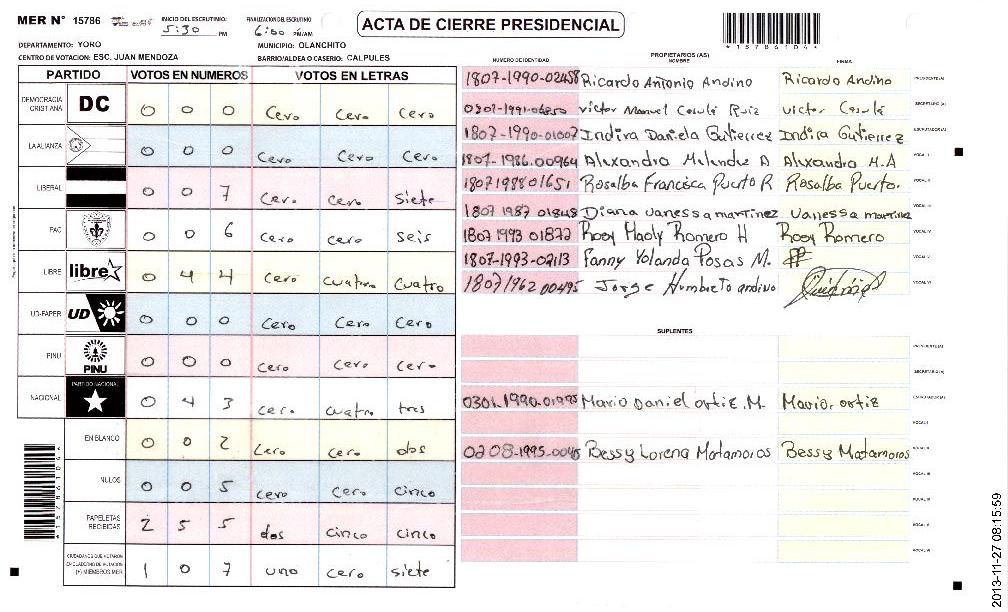 MER N° 15786 INICIO DEL ESCRUTINIO 5:30 PM FINALIZACION DEL ESCRUTINIO 6:00 PM/AM ACTA DE CIERRE PRESIDENCIAL
DEPARTAMENTO: YORO MUNICIPIO: OLANCHITO
CENTRO DE VOTACION: ESC. JUAN MENDOZA BARRIO/ALDEA O CASERIO: CALPULES
PARTIDO VOTOS EN NUMEROS VOTOS EN LETRAS
DEMOCRACIA CRISTIANA DC 0 0 0 Cero Cero Cero
LA ALIANZA 0 0 0 Cero Cero Cero
LIBERAL 0 0 7 Cero Cero Siete
PAC 0 0 6 Cero Cero seis
LIBRE libre 0 4 4 Cero Cuatro Cuatro
UD-FAPER UD 0 0 0 Cero Cero Cero
PINU PINU 0 0 0 Cero Cero Cero
NACIONAL PARTIDO NACIONAL 0 4 3 Cero Cuatro tres
EN BLANCO 0 0 2 Cero Cero dos
NULOS 0 0 5 Cero Cero cinco
PAPELETAS RECIBIDAS 2 5 5 dos cinco cinco
CIUDADANOS QUE VOTARON EN CUADERNO DE VOTACION (+) MIEMBROS MER 1 0 7 uno cero siete
PROPIETARIOS (AS)
NUMERO DE IDENTIDAD NOMBRE FIRMA
Ricardo Antonio Andino Ricardo Andino PRESIDENTE(A)
Victor Manuel Cosulá Ruiz Victor Cosulá SECRETARIO (A)
1807-1990-01007 Indira Daniela Gutierrez Indira Gutierrez ESCRUTADOR (A)
1807-1986.00964 Alexandra Melendez A Alexandra M.A VOCAL I
1807198801651 Rosalba Francisca Puerto R Rosalba Puerto. VOCAL II
1807 1987 01848 Diana vanessa martinez vanessa martinez VOCAL III
1807 1993 01872 Rosy Romero H Rosy Romero VOCAL IV
1807-1993-02113 Fanny Yolanda Posas M. VOCAL V
1807 1962 00495 Jorge Humberto andino VOCAL VI
SUPLENTES
PRESIDENTE(A)
SECRETARIO (A)
Mario Daniel ortiz. M. Mario. ortiz ESCRUTADOR (A)
VOCAL I
Bessy Lorena Matamoros Bessy Matamoros VOCAL II
VOCAL III
VOCAL IV
VOCAL V
VOCAL VI
*15786104*
2013-11-27 08:15:59